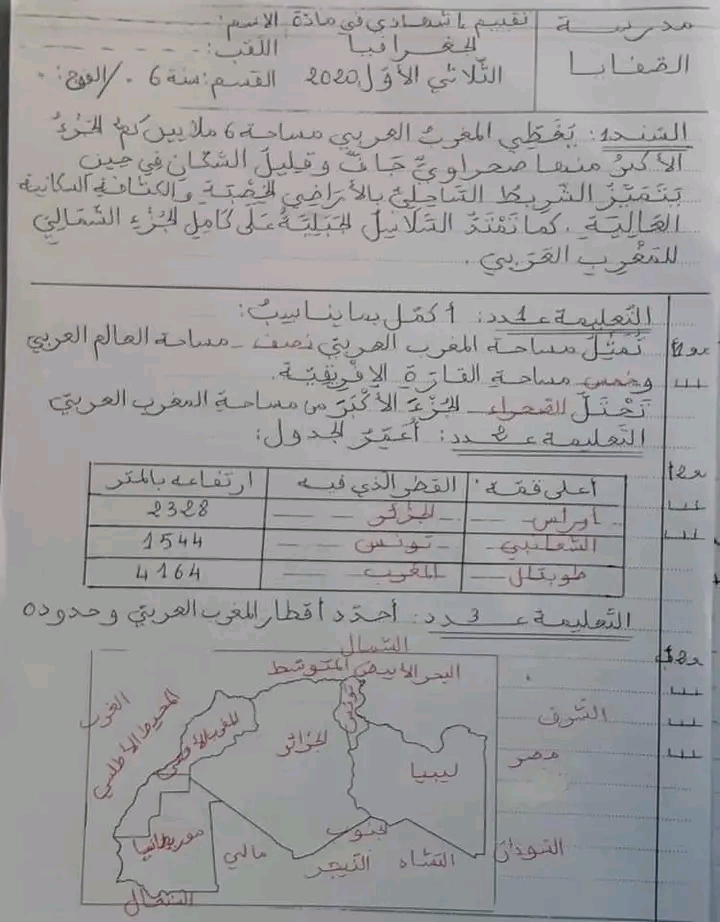 مدرسة
القضابا
تقييم إشهادي في مادة
الجغرافيا
الثلاثي الأوّل 2020
الاسم:
اللقب:
القسم: سنة 6 / الفوج:
السند1: يُغَطِّي المغربُ العربي مساحة 6 ملايين كم² الجزءُ
الأكبرُ منها صحراويٌّ جافٌّ وقليلُ السّكّان في حين
يَتَمَيَّزُ الشّريطُ السّاحليُّ بالأراضي الخِصْبَةِ والكثافة السكانية
العالِيَةِ. كما تَمْتَدُّ السّلاسِلُ الجبَلِيّةُ عَلَى كَامِلِ الجُزْءِ الشّماليّ
للمَغْرِبِ العَرَبي.
التّعليمة عـ1ـدد: أكمّل بما يناسبُ:
تُمَثِّلُ مساحة المغرب العربيّ نصف مساحة العالم العربي
وخمس مساحة القارّةِ الإفْريقيّة.
تَحْتَلُّ الصّحراء الجُزْءَ الأكبَرَ من مساحةِ المغرب العربيّ
التّعليمة عـ2ـدد: أُعَمِّرُ الجدول:
أعلى قمّة القطر الذي فيه ارتفاعه بالمتر
أوراس الجزائر 2328
الشعانبي تونس 1544
طوبقال المغرب 4164
التّعليمة عـ3ـدد: أحدّد أقطار المغرب العربيّ وحدوده
الشمال
البحر الأبيض المتوسط
الغرب
المحيط الأطلسي
المغرب الأقصى
تونس
الجزائر
ليبيا
الشرق
مصر
موريطانيا
مالي
الجنوب
النيجر
التشاد
السّودان